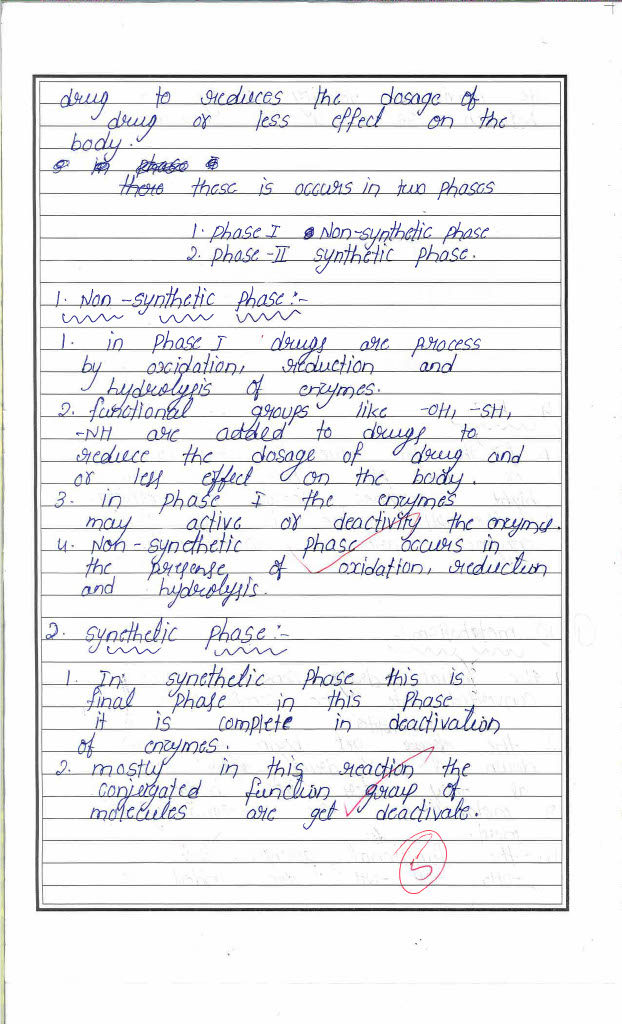 drug to reduces the dosage of
drug or less effect on the
body.
in phase I
there these is occurs in two phases
1. Phase I Non-synthetic phase
2. phase-II synthetic phase.
1. Non-synthetic phase :-
1. in Phase I drugs are process
by oxidation, reduction and
hydrolysis of enzymes.
2. functional groups like -OH, -SH,
-NH are added to drugs to
reduce the dosage of drug and
or less effect on the body.
3. in phase I the enzymes
may active or deactivity the enzymes.
4. Non-synethetic phase occurs in
the presense of oxidation, reduction
and hydrolysis.
2. synethetic phase :-
1. In synethetic phase this is
final phase in this phase
it is complete in deactivation
of enzymes.
2. mostly in this reaction the
conjugated function group of
molecules are get deactivate.
5